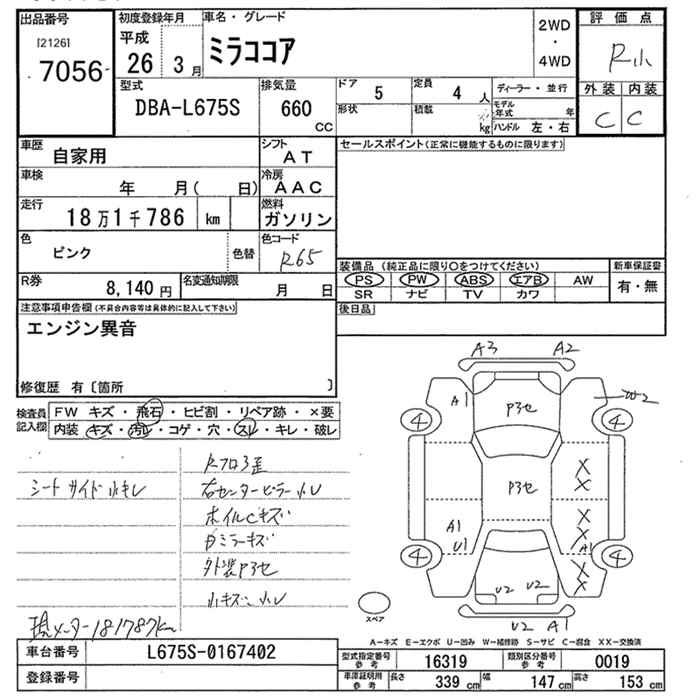 出品番号
[2126]
7056
初度登録年月
平成
26 3月
車名・グレード
ミラココア
2WD
・
4WD
評価点
R小
外装 内装
C C
型式
DBA-L675S
排気量
660
cc
ドア 5
定員 4 人
形状
積載 kg
ディーラー・並行
モデル年式 年
ハンドル 左・右
車歴
自家用
シフト
AT
車検
年 月( 日)
冷房
AAC
走行
18万1千786 km
燃料
ガソリン
色
ピンク
色替
色コード
R65
R券
8,140円
名変通知期限
月 日
セールスポイント(正常に機能するものに限ります)
装備品(純正品に限り〇をつけてください)
PS PW ABS エアB AW
SR ナビ TV カワ
新車保証書
有・無
後日品
注意事項申告欄(不具合内容等は具体的に記入して下さい)
エンジン異音
修復歴 有〔箇所 〕
検査員記入欄
FW キズ・飛石・ヒビ割・リペア跡・×要
内装 キズ・汚レ・コゲ・穴・スレ・キレ・破レ
シートサイド小キレ
Rフロア歪
右センターピラー小U
ホイルCキズ
Dミラーキズ
外装P3セ
小キズ小U
現メーター181787km
A3 A2
A1
P3セ
W2
4 4
P3セ
X
X
A1
U1
X
X
A1
X
X
4 4
U2 U2
U2 A1
スペア
A-キズ E-エクボ U-凹み W-補修跡 S-サビ C-腐食 XX-交換済
車台番号
L675S-0167402
登録番号
型式指定番号
参考
16319
類別区分番号
参考
0019
車庫証明用
参考
長さ 339cm 幅 147cm 高さ 153cm